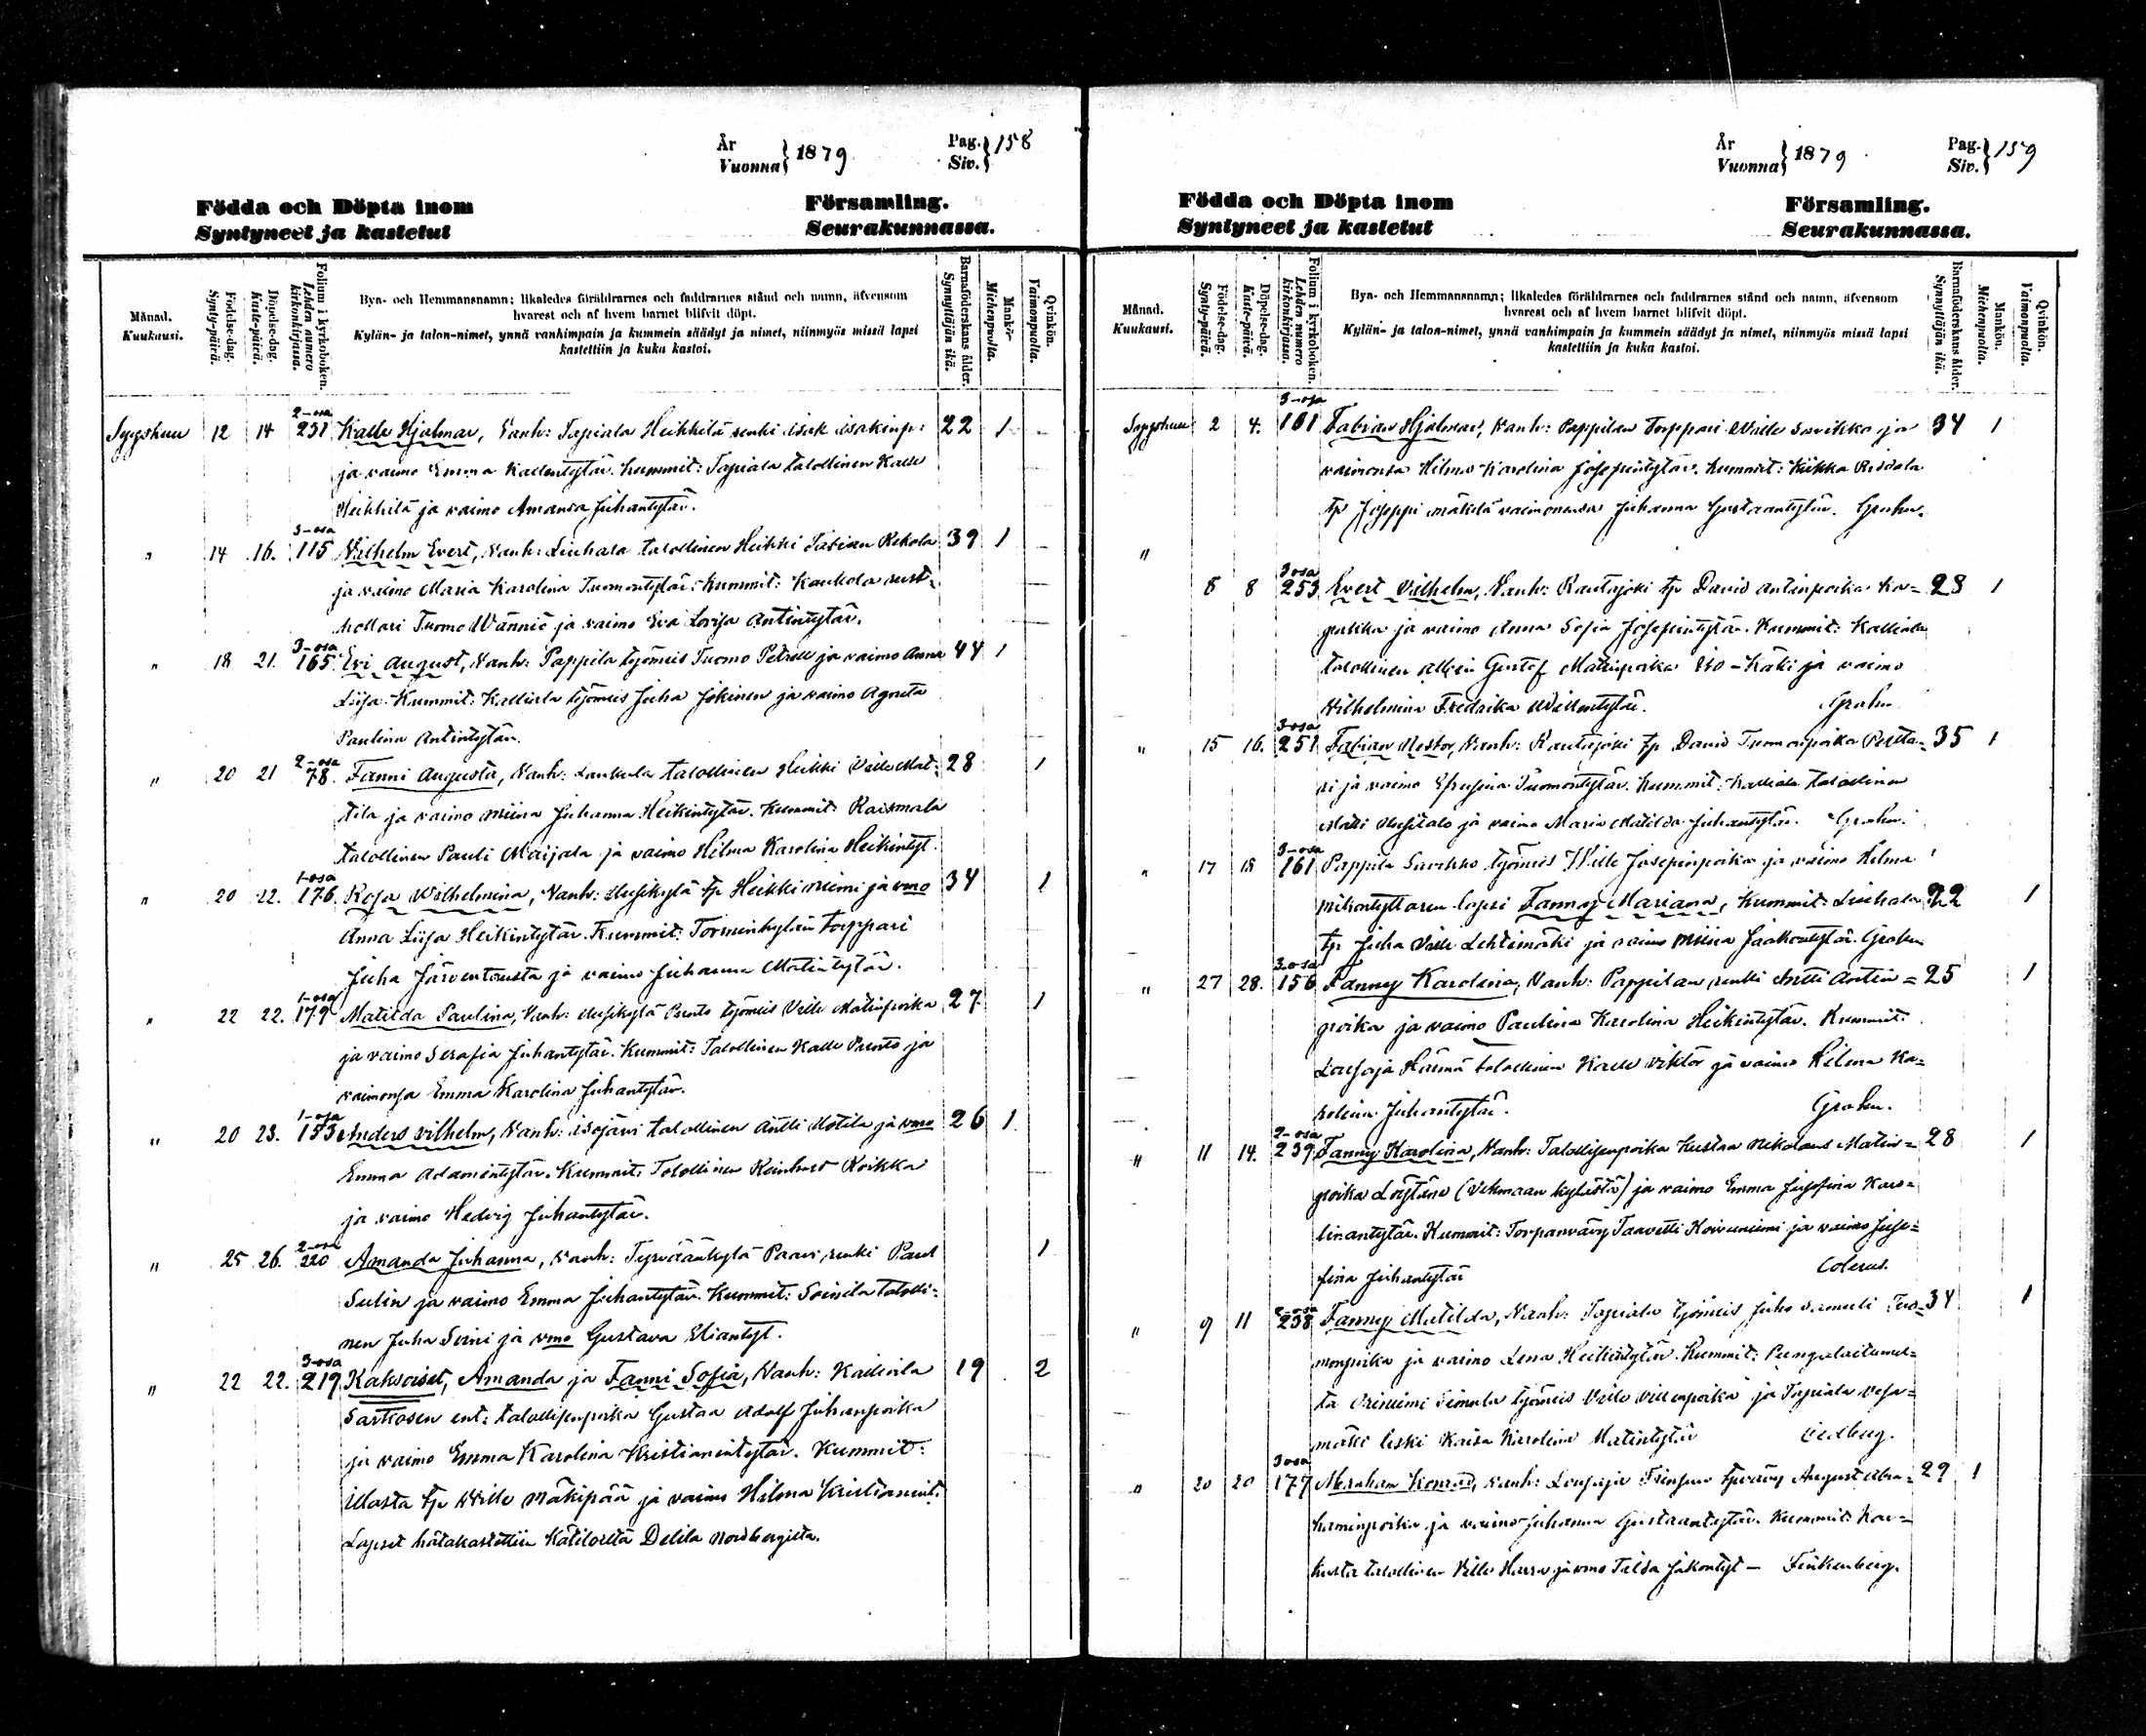 År
Vuonna } 1879.
Pag.
Siv. } 158
Födda och Döpta inom Församling.
Syntyneet ja kastetut Seurakunnassa.
Månad.
Kuukausi.
Födelse-dag.
Synty-päivä.
Döpelse-dag.
Kaste-päivä.
Folium i kyrkoboken.
Lehden numero
kirkonkirjassa.
Bya- och Hemmansnamn; likaledes föräldrarnes och faddrarnes stånd och namn, äfvensom
hvarest och af hvem barnet blifvit döpt.
Kylän- ja talon-nimet, ynnä vanhimpain ja kummein säädyt ja nimet, niinmyös missä lapsi
kastettiin ja kuka kastoi.
Barnaföderskans ålder.
Synnyttäjän ikä.
Mankön.
Miehenpuolta.
Qvinkön.
Vaimonpuolta.
2-osa
Syyskuu 12 14 231 Kalle Hjalmar, Vanh: Tapiala Heikkilä renki Isak Isakinp: 22 1
ja vaimo Emma Kallentytär. Kummit: Tapiala talollinen Kalle
Heikkilä ja vaimo Amanda Juhantytär.
3-osa
" 14 16. 115 Vilhelm Evert, Vanh: Liuhala talollinen Heikki Fabian Rekola 39 1
ja vaimo Maria Karolina Tuomontytär. Kummit: Kaukola rust.
hollari Tuomo Vännie ja vaimo Eva Lovisa Antintytär.
3-osa
" 18 21. 165. August, Vanh: Pappila työmies Tuomo Petrell ja vaimo Anna 44 1
Liisa. Kummit: Kalliala työmies Juha Jokinen ja vaimo Agneta
Paulina Antintytär.
2-osa
" 20 21 78. Fanni Augusta, Vanh: Laukula talollinen Heikki Ville Mat- 28 1
tila ja vaimo Miina Juhanna Heikintytär. Kummit: Raismala
talollinen Pauli Maijala ja vaimo Hilma Karolina Heikintyt.
1-osa
" 20 22. 176. Rosa Wilhelmina, Vanh: Uusikylä tp Heikki Niemi ja vmo 34 1
Anna Liisa Heikintytär. Kummit: Torminkylän torppari
Juha Järventausta ja vaimo Juhanna Matintytär.
1-osa
" 22 22. 179 Matilda Paulina, Vanh: Uusikylä Punto työmies Ville Matinpoika 27 1
ja vaimo Serafia Juhantytär. Kummit: Talollinen Kalle Punto ja
vaimonsa Emma Karolina Juhantytär.
1-osa
" 20 23. 153 Anders Vilhelm, Vanh: Isojärvi talollinen Antti Uotila ja vmo 26 1
Emma Adamintytär. Kummit: Talollinen Reinhard Roikka
ja vaimo Hedvig Juhantytär.
2-osa
" 25 26. 220 Amanda Juhanna, Vanh: Tyrväänkylä Paavi renki Paul 1
Sulin ja vaimo Emma Juhantytär. Kummit: Soinila talolli-
nen Juha Soini ja vmo Gustava Eliantyt.
3-osa
" 22 22. 219 Kaksoiset, Amanda ja Fanni Sofia, Vanh: Kalliala 19 2
Sarkosen ent: talollisenpoika Gustaa Adolf Juhanpoika
ja vaimo Emma Karolina Kristianintytär. Kummit:
Illasta tp Ville Mäkipää ja vaimo Hilma Kristianint:
Lapset hätäkastettiin Kätilöltä Delila Nordbergilta.
År
Vuonna } 1879
Pag.
Siv. } 159
Födda och Döpta inom Församling.
Syntyneet ja kastetut Seurakunnassa.
Månad.
Kuukausi.
Födelse-dag.
Synty-päivä.
Döpelse-dag.
Kaste-päivä.
Folium i kyrkoboken.
Lehden numero
kirkonkirjassa.
Bya- och Hemmansnamn; likaledes föräldrarnes och faddrarnes stånd och namn, äfvensom
hvarest och af hvem barnet blifvit döpt.
Kylän- ja talon-nimet, ynnä vanhimpain ja kummein säädyt ja nimet, niinmyös missä lapsi
kastettiin ja kuka kastoi.
Barnaföderskans ålder.
Synnyttäjän ikä.
Mankön.
Miehenpuolta.
Qvinkön.
Vaimonpuolta.
3-osa
Syyskuu 2 4. 161 Fabian Hjalmar, Vanh: Pappilan torppari Ville Savikko ja 34 1
vaimonsa Hilma Karolina Josepintytär. Kummit: Kiikka Rissala
tp Joseppi Mäkelä vaimonensa Juhanna Gustaantytär. Grahn.
"
3 osa
8 8 253 Evert Vilhelm, Vanh: Rautajoki tp David Antinpoika 28 1
ja vaimo Anna Sofia Josepintytär. Kummit: Kalliala
talollinen Albin Gustaf Matinpoika Iso-Käki ja vaimo
Vilhelmina Fredrika Villentytär. Grahn
3-osa
" 15 16. 251 Fabian Nestor, Vanh: Rautajoki tp David Tuomonpoika Pertta- 35 1
ri ja vaimo Efrusina Tuomontytär. Kummit: Kalliala talollinen
Matti Uusitalo ja vaimo Maria Matilda Juhantytär. Grahn.
3-osa
" 17 18 161 Pappila Savikko työmies Ville Josepinpoika ja vaimo Hilma
tyttären lapsi Fanny Mariana, Kummit: Liuhala 22 1
tp Juha Ville Lehtimäki ja vaimo Miina Jaakontytär. Grahn
3-osa
" 27 28. 156 Fanny Karolina, Vanh: Pappilan renki Antti Antin- 25 1
poika ja vaimo Paulina Karolina Heikintytär. Kummit:
Lousaja Härmä talollinen Kalle Viktor ja vaimo Hilma Ka-
rolina Juhantytär. Grahn.
2-osa
" 11 14. 239 Fanny Karolina, Vanh: Talollisenpoika Kustaa Nikolaus Matin- 28 1
poika Löytäne (Vehmaan kylästä) ja vaimo Emma Josefina Karo-
linantytär. Kummit: Torpanvävy Taavetti Koivuniemi ja vaimo Jose-
fina Juhantytär Colerus.
2-osa
" 9 11 238 Fanny Matilda, Vanh: Tapiala työmies Juho Samuli Tuo- 34 1
monpoika ja vaimo Lena Heikintytär. Kummit: Pungalaitumel-
ta Oriniemi Simula työmies Ville Villenpoika ja Tapiala Vesa-
mäki leski Kaisa Karolina Matintytär Cedberg.
3 osa
" 20 20 177 Abraham Konrad, Vanh: Lousaja tpvävy August Abra- 29 1
haminpoika ja vaimo Juhanna Gustaantytär. Kummit: Kau-
kusta talollinen Ville Harra ja vmo Tilda Jakontyt - Finkenberg.